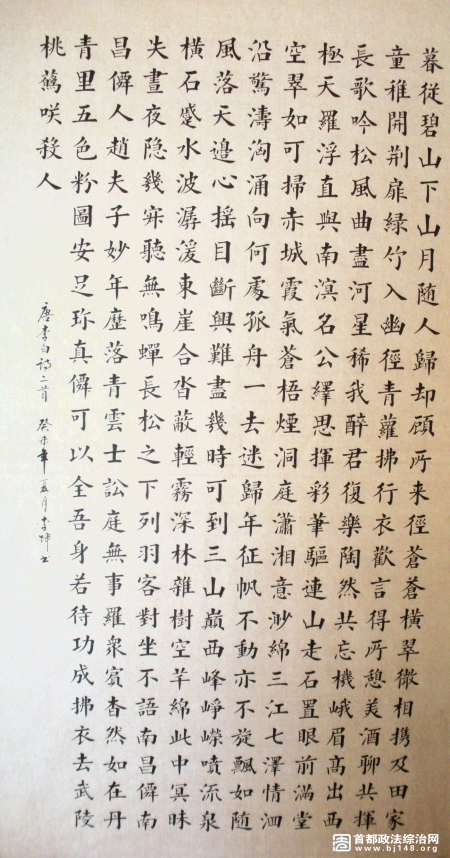 暮從碧山下山月随人歸却顧所来徑蒼蒼橫翠微相携及田家
童稚開荆扉綠竹入幽徑青蘿拂行衣歡言得所憩美酒聊共揮
長歌吟松風曲盡河星稀我醉君復樂陶然共忘機峨眉高出西
極天羅浮直與南溟名公繹思揮彩筆驅連山走石置眼前滿堂
空翠如可掃赤城霞氣蒼梧煙洞庭瀟湘意渺綿三江七澤情洄
沿驚濤洶涌向何處孤舟一去迷歸年征帆不動亦不旋飄如随
風落天邉心摇目斷興難盡幾時可到三山巔西峰崢嶸噴流泉
橫石蹙水波潺湲東崖合沓蔽輕霧深林雜樹空芊綿此中冥昧
失晝夜隐幾寂聽無鳴蟬長松之下列羽客對坐不語南昌僊南
昌僊人趙夫子妙年歷落青雲士訟庭無事羅衆賓杳然如在丹
青里五色粉圖安足珎真僊可以全吾身若待功成拂衣去武陵
桃蘤咲殺人
唐李白詩二首 癸未年夏月李
首都政法综治网
www.bj148.org